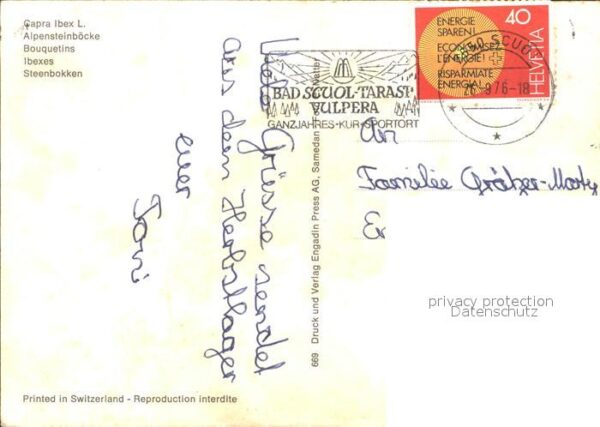 Capra Ibex L.
Alpensteinböcke
Bouquetins
Ibexes
Steenbokken
ENERGIE
SPAREN!
ECONOMISEZ
L'ENERGIE!
RISPARMIATE
ENERGIA!
40
HELVETIA
BAD SCUOL-TARASP
VULPERA
GANZJAHRES-KUR-SPORTORT
SCUOL
26.9.76-18
Viele Grüsse sendet
aus dem Herbstlager
euer
Toni
669 Druck und Verlag Engadin Press AG, Samedan
An
Familie Grätzer-Marty
E
privacy protection
Datenschutz
Printed in Switzerland - Reproduction interdite